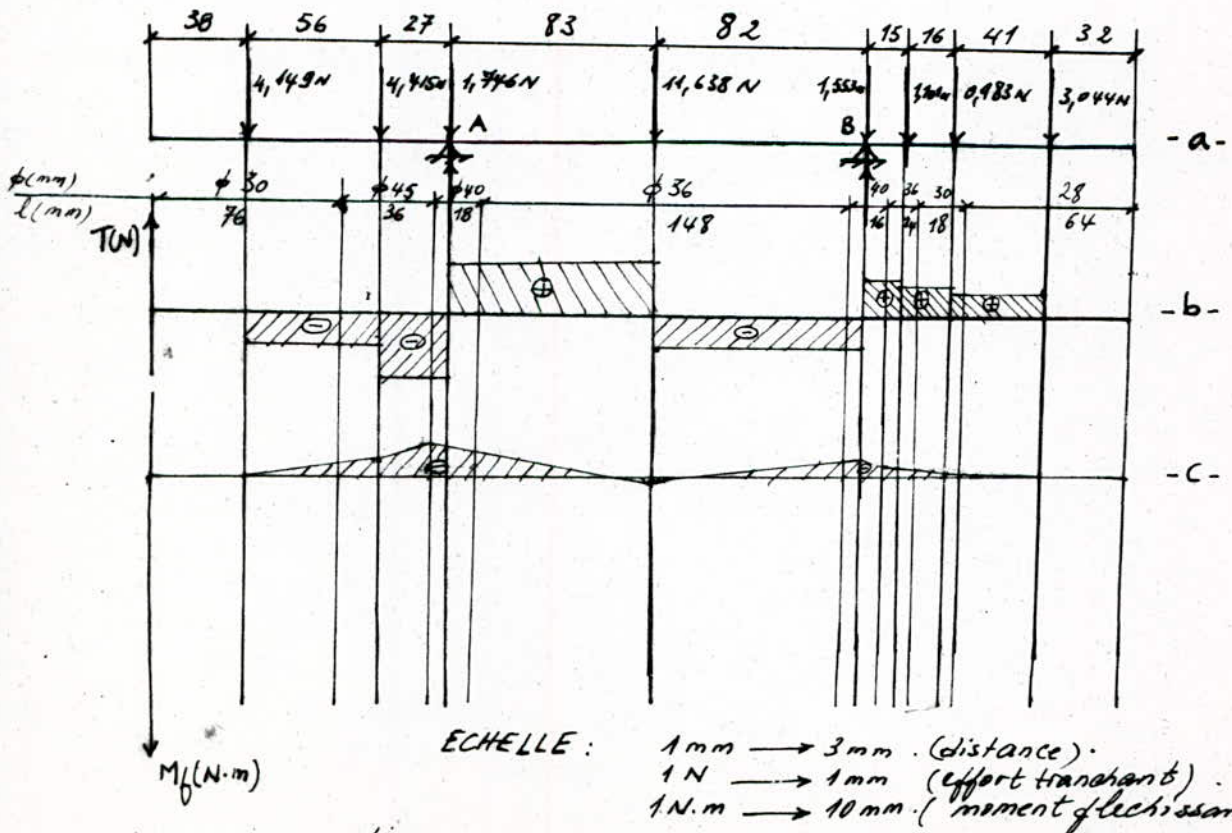 38 56 27 83 82 15 16 41 32
4,149N 4,415N 1,746N 11,638N 0,983N 3,044N
A B -a-
ϕ(mm) ϕ 30 ϕ45 ϕ40 ϕ36 40 36 30 28
l(mm) 76 36 18 148 16 18 64
T(N)
⊕ ⊕ ⊕ ⊕
-b-
⊖ ⊖ ⊖
⊖ ⊖ -c-
ECHELLE : 1mm → 3mm . (distance).
1N → 1mm (effort tranchant) .
1N.m → 10mm .( moment flechissan
Mf(N.m)